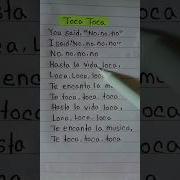 Toca Toca
You said, "No, no, no"
I said "No, no, no, no"
No, no, no, no
Hasta la vida, loca,
Loca, Loca, loc
Te encanta la m
Te toca, toca, to
Hasta la vida, loca,
Loca, Loca, loca
Te encanta la musica,
Te toca, toca, toca